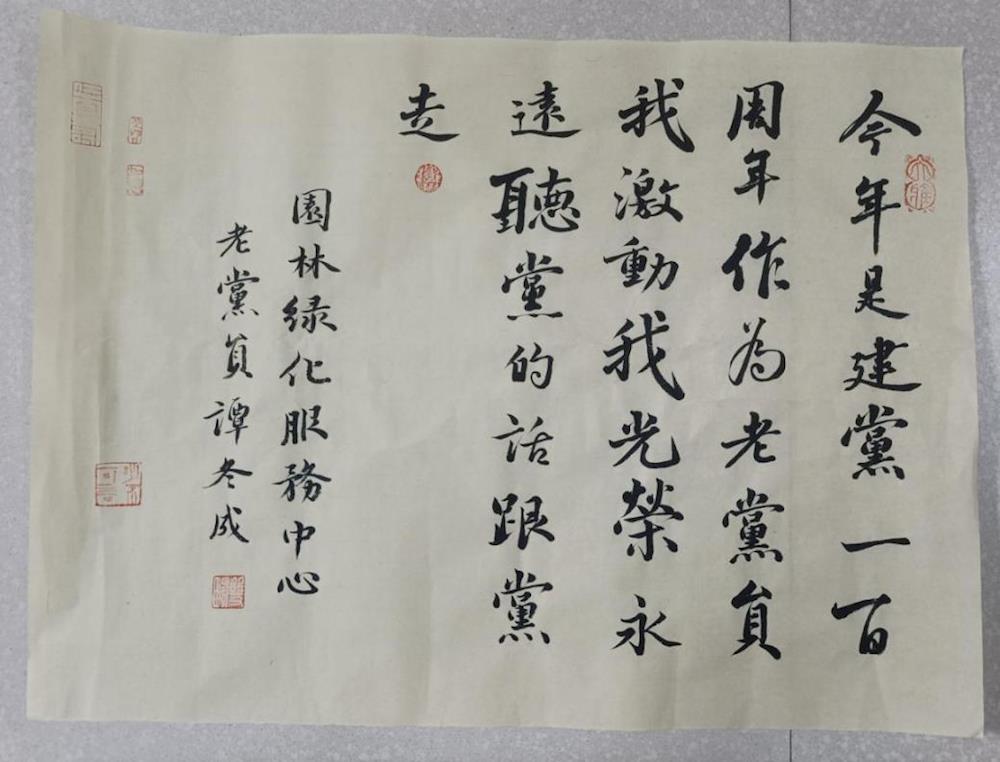 今年是建黨一百
周年作為老黨員
我激動我光榮永
遠聽黨的話跟黨
走
園林绿化服務中心
老黨員譚冬成